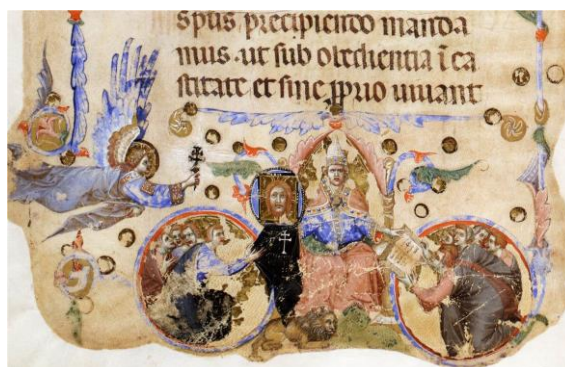 sptis precipiendo manda
mus. ut sub obedientia ī ca
stitate et sine ꝓprio uiuant